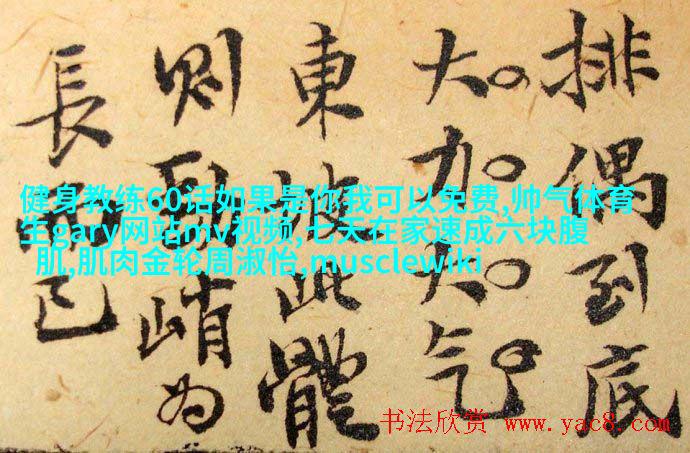 排偶到底
大加大气
東坡此體
則峭为
長而已
健身教练60话如果是你我可以免费,帅气体育
生gary网站mv视频,七天在家速成六块腹
肌,肌肉金轮周淑怡,musclewiki
书法欣赏 www.yac8.com